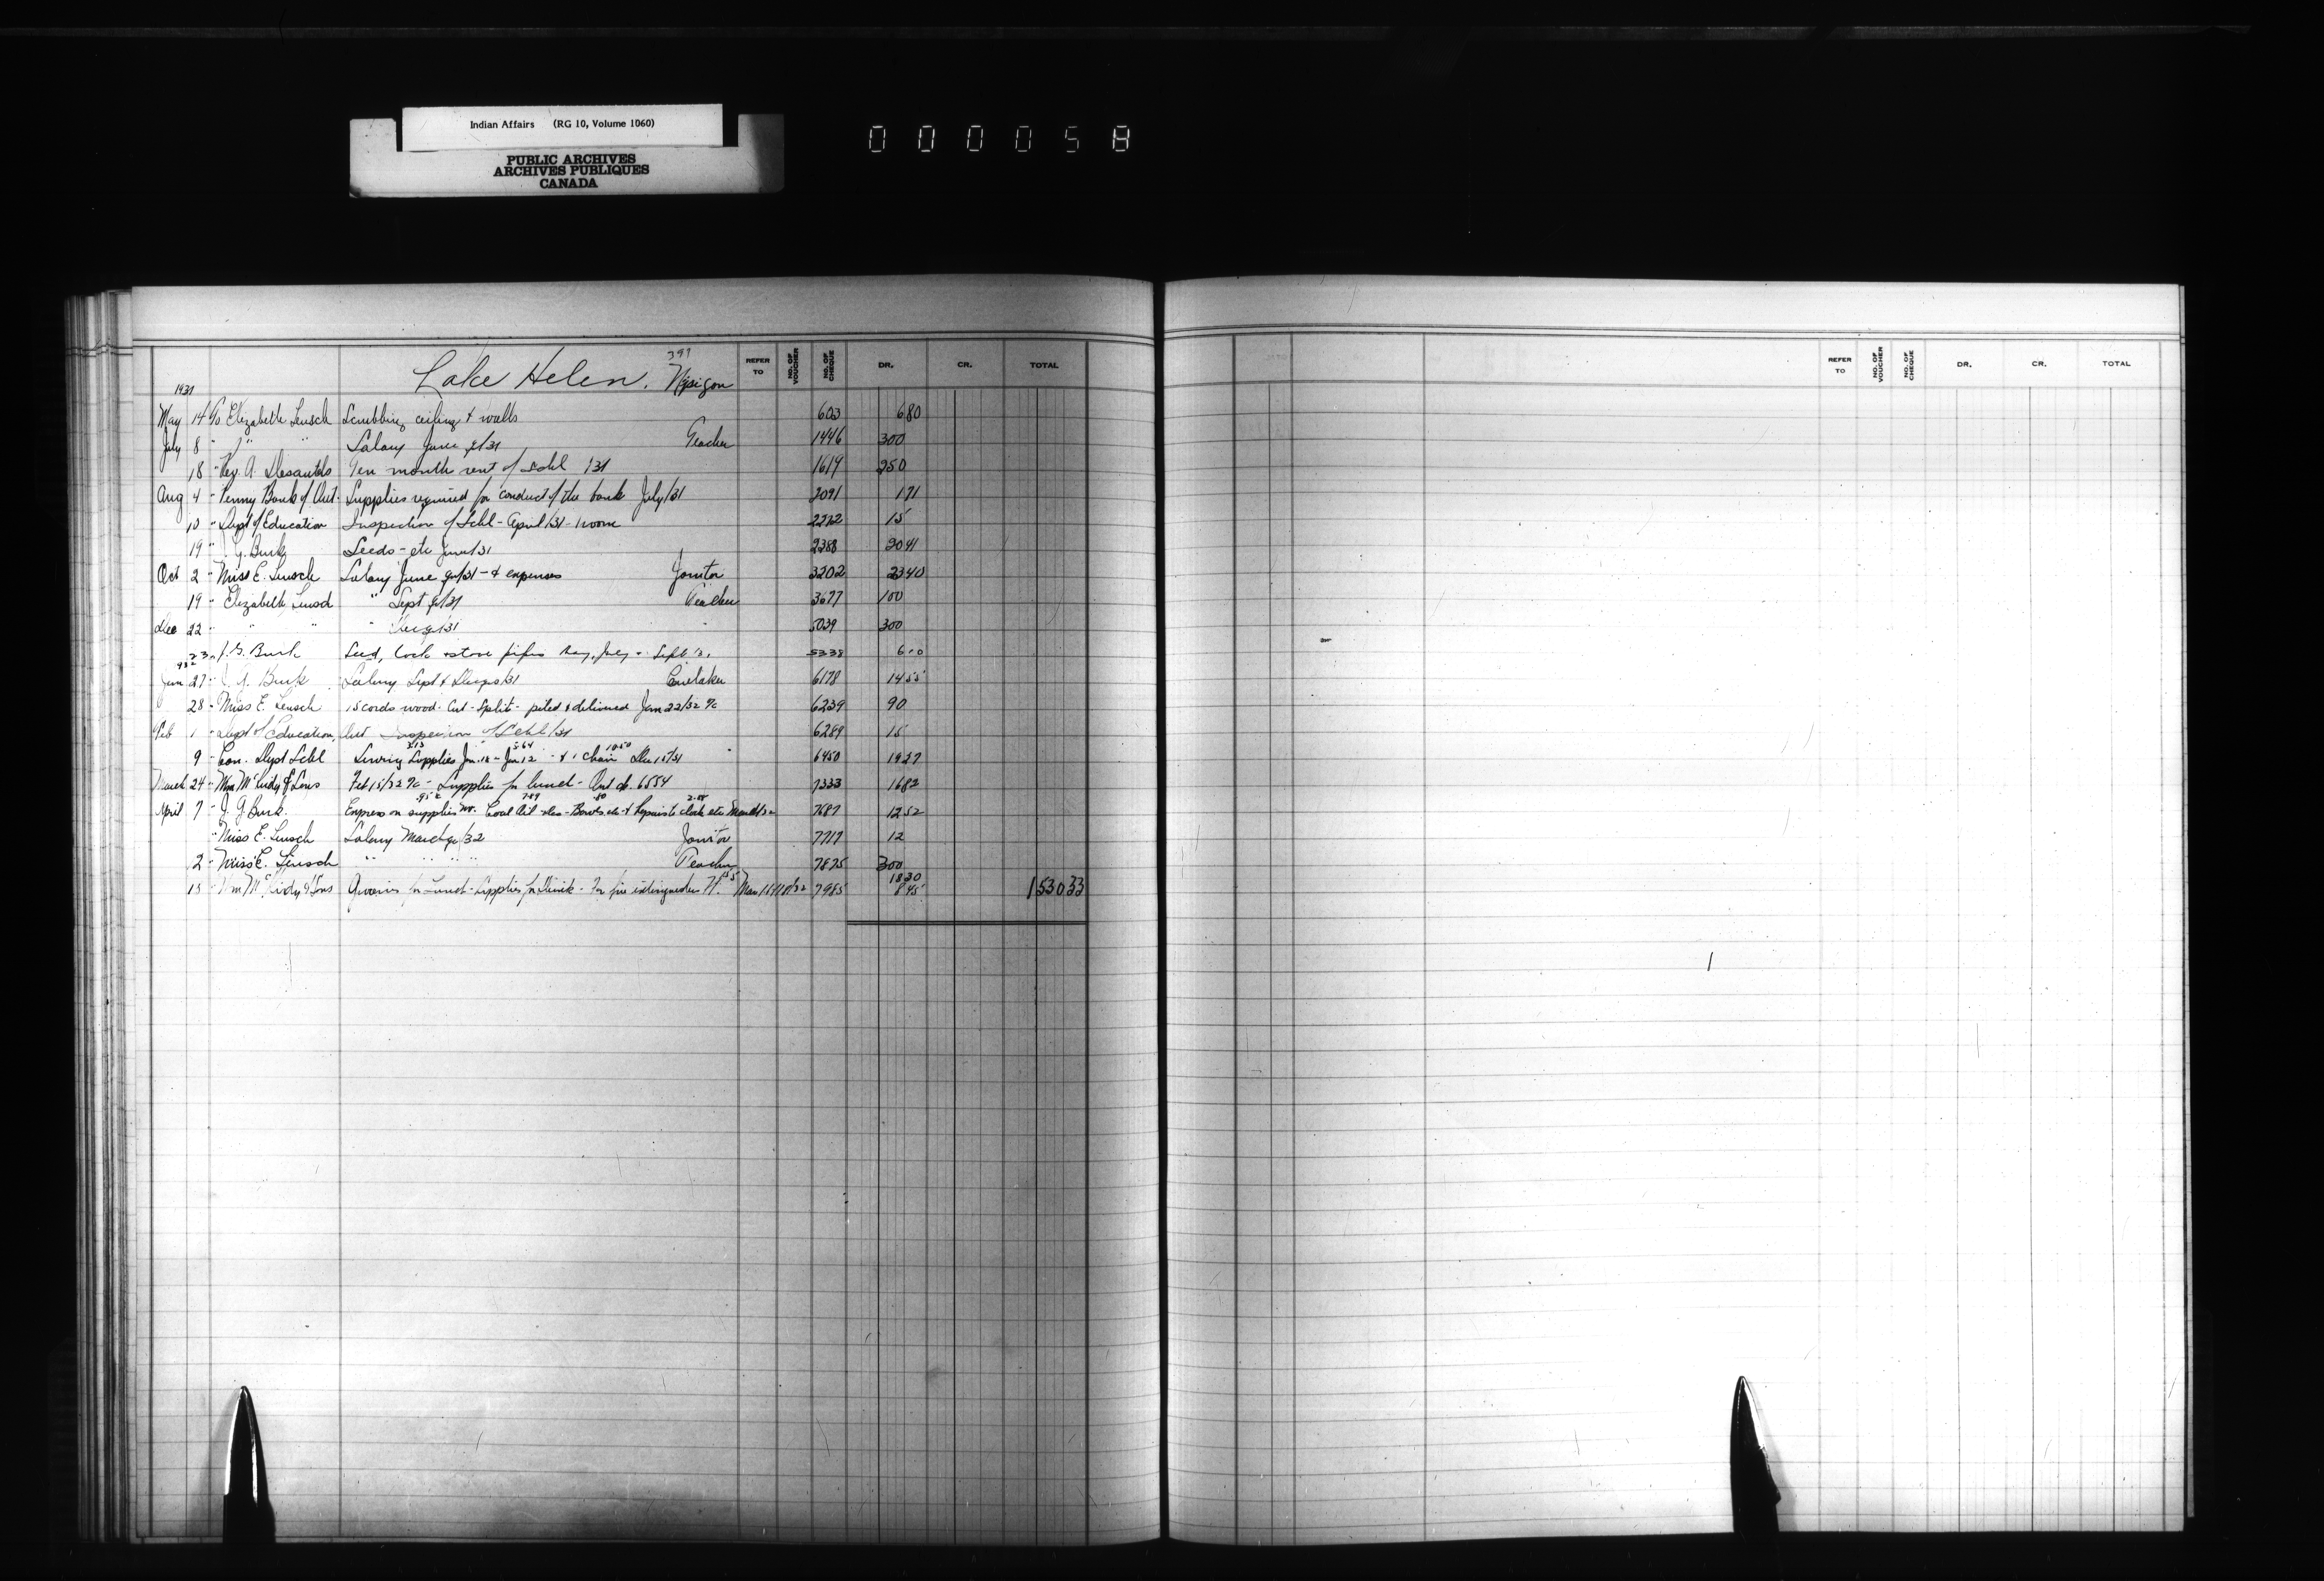 Indian Affairs (RG 10, Volume 1060)
PUBLIC ARCHIVES
ARCHIVES PUBLIQUES
CANADA
000058
397
Lake Helen. Nipigon
REFER TO NO. OF VOUCHER NO. OF CHEQUE DR. CR. TOTAL
1931
May 14 To Elizabeth Lensch Scrubbing ceiling & walls 603 6 80
July 8 " " " Salary June qr/31 Teacher 1446 300
18 " Rev. A. Desautels Ten month rent of schl /31 1619 250
Aug 4 " Penny Bank of Ont. Supplies required for conduct of the bank July/31 2091 1 71
10 " Dept of Education Inspection of Schl - April/31 - 1 room 2212 15
19 " J. G. Burk Seeds - etc June/31 2388 20 41
Oct 2 " Miss E. Lensch Salary June qr/31 - & expenses Janitor 3202 23 40
19 " Elizabeth Lensch " Sept qr/31 Teacher 3677 100
Dec 22 " " " " Dec qr/31 " 5039 300
23 " J. G. Burk Seed, lock & stove pipes May, July & Sept 5338
1932
Jan 27 " J. G. Burk Salary Sept & Dec qrs/31 Caretaker 6178 14 55
28 " Miss E. Lensch 15 cords wood - Cut - Split - piled & delivered Jan 22/32 % 6239 90
Feb 1 " Dept of Education, Ont Inspection of Schl/31 6289 15
9 " Con. Dept Schl Sewing Supplies Jan. 12 & 1 chair Dec 15/31 6450 19 27
5 64 10 50
March 24 " Wm McKirdy & Sons Feb 15/32 % - Supplies for lunch - Ont ch. 6554 7333 16 82
April 7 " J. G. Burk. Express on supplies Coal Oil Bowls etc & Repairs to clock etc March/32 7687 12 52
" Miss E. Lensch Salary March qr/32 Janitor 7717 12
2 " Miss E. Lensch " " " " Teacher 7875 300
18 30
15 " Wm McKirdy & Sons Groceries for Lunch - Supplies for - For fire extinguisher 7985 8 45 1530 33
REFER TO NO. OF VOUCHER NO. OF CHEQUE DR. CR. TOTAL